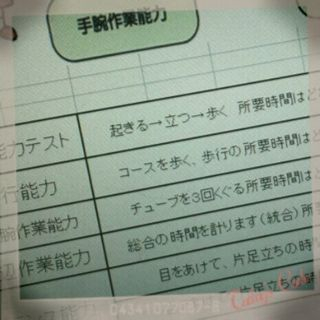 手腕作業能力
能力テスト
起きる→立つ→歩く 所要時間はど
行能力
コースを歩く、歩行の所要時間はど
腕作業能力
チューブを3回くぐる所要時間はど
辺作業能力
総合の時間を計ります(統合)所
目をあけて、片足立ちの時
片足立ちの